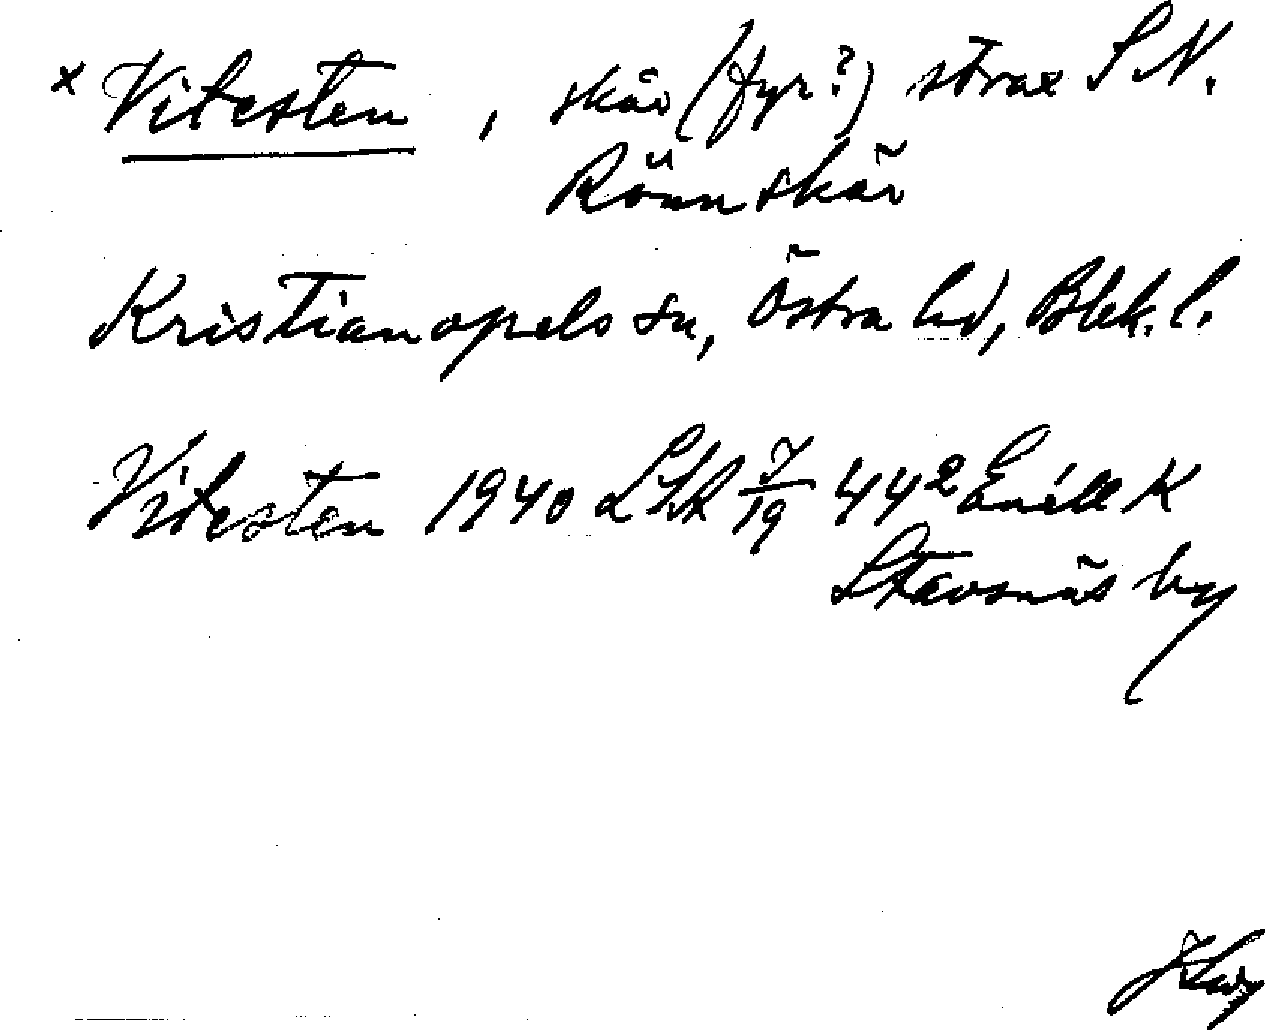 x Vitesten, skär (fyr?) strax S.N.
Rönnskär
Kristianopels sn, Östra hd, Blek. l.
Vitesten 1940 LSA 7/19 442 Enéll K
Stavsnäs by